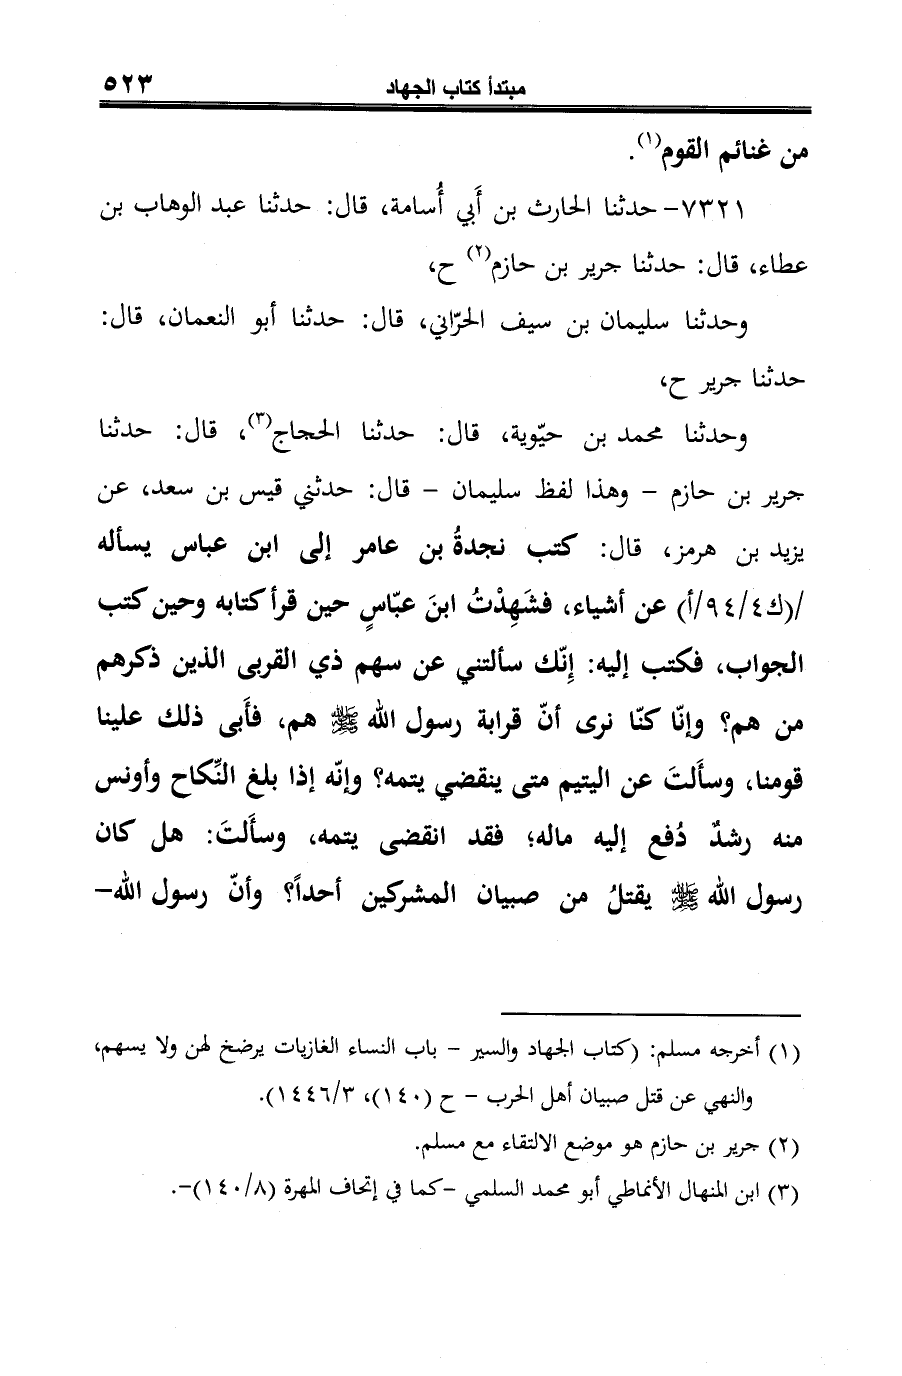 مبتدأ كتاب الجهاد ٥٢٣
من غنائم القوم(١).
٧٣٢١- حدثنا الحارث بن أَبي أُسامة، قال: حدثنا عبد الوهاب بن
عطاء، قال: حدثنا جرير بن حازم(٢) ح،
وحدثنا سليمان بن سيف الحرّاني، قال: حدثنا أبو النعمان، قال:
حدثنا جرير ح،
وحدثنا محمد بن حيّوية، قال: حدثنا الحجاج(٣)، قال: حدثنا
جرير بن حازم – وهذا لفظ سليمان – قال: حدثني قيس بن سعد، عن
يزيد بن هرمز، قال: كتب نجدةُ بن عامر إلى ابن عباس يسأله
/(ك٩٤/٤/أ) عن أشياء، فشَهِدْتُ ابنَ عبّاسٍ حين قرأ كتابه وحين كتب
الجواب، فكتب إليه: إِنّك سألتني عن سهم ذي القربى الذين ذكرهم
من هم؟ وإنّا كنّا نرى أنّ قرابة رسول الله ﷺ هم، فأَبى ذلك علينا
قومنا، وسأَلتَ عن اليتيم متى ينقضي يتمه؟ وإنّه إذا بلغ النِّكاح وأونس
منه رشدٌ دُفع إليه ماله؛ فقد انقضى يتمه، وسأَلتَ: هل كان
رسول الله ﷺ يقتلُ من صبيان المشركين أحداً؟ وأنّ رسول الله–
(١) أخرجه مسلم: (كتاب الجهاد والسير – باب النساء الغازيات يرضخ لهن ولا يسهم،
والنهي عن قتل صبيان أهل الحرب – ح (١٤٠)، ١٤٤٦/٣).
(٢) جرير بن حازم هو موضع الالتقاء مع مسلم.
(٣) ابن المنهال الأنماطي أبو محمد السلمي –كما في إتحاف المهرة (١٤٠/٨)–.